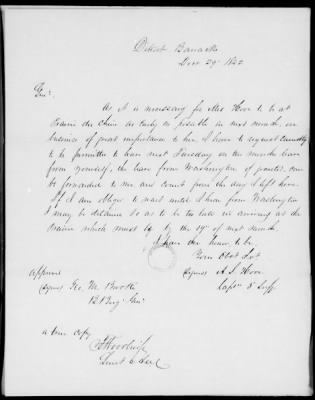 Detroit Barracks
Decr 29th 1842
Genl,
As it is necessary for Mrs Hooe to be at
Prairie du Chien as early as possible in next month, on
business of great importance to her, I have to request
to be permitted to leave next Tuesday on the months leave
from yourself, the leave from Washington if granted, can
be forwarded to me and count from the day I left here.
If I am obliged to wait until I hear from Washington
I may be detained so as to be too late in arriving at the
Prairie which must be by the 19th of next month.
I have the honor to be,
Your Obt Svt
(Signed) A. S. Hooe
Capt 5 Infy
approved
(signed) Geo. M. Brooke
Bt Brig. Genl
a true copy
Lieut &